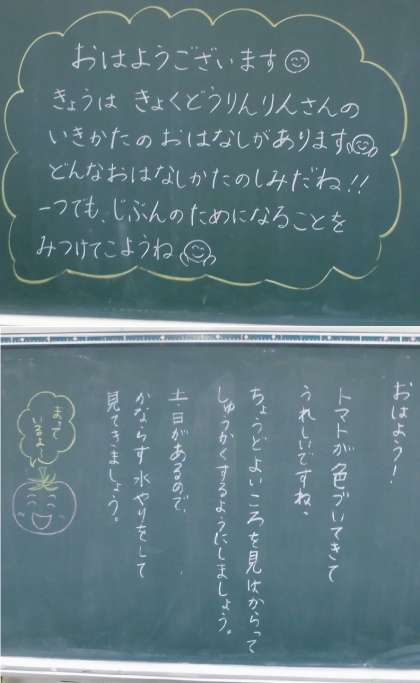 おはようございます
きょうは きょくどうりんりんさんの
いきかたのおはなしがあります
どんなおはなしかたのしみだね!!
一つでも、じぶんのためになることを
みつけてこようね
おはよう!
トマトが色づいてきて
うれしいですね。
ちょうどよいころを見はからって
しゅうかくするようにしましょう。
土日があるので、
かならず水やりをして
見てきましょう。
まって
いるよ〜